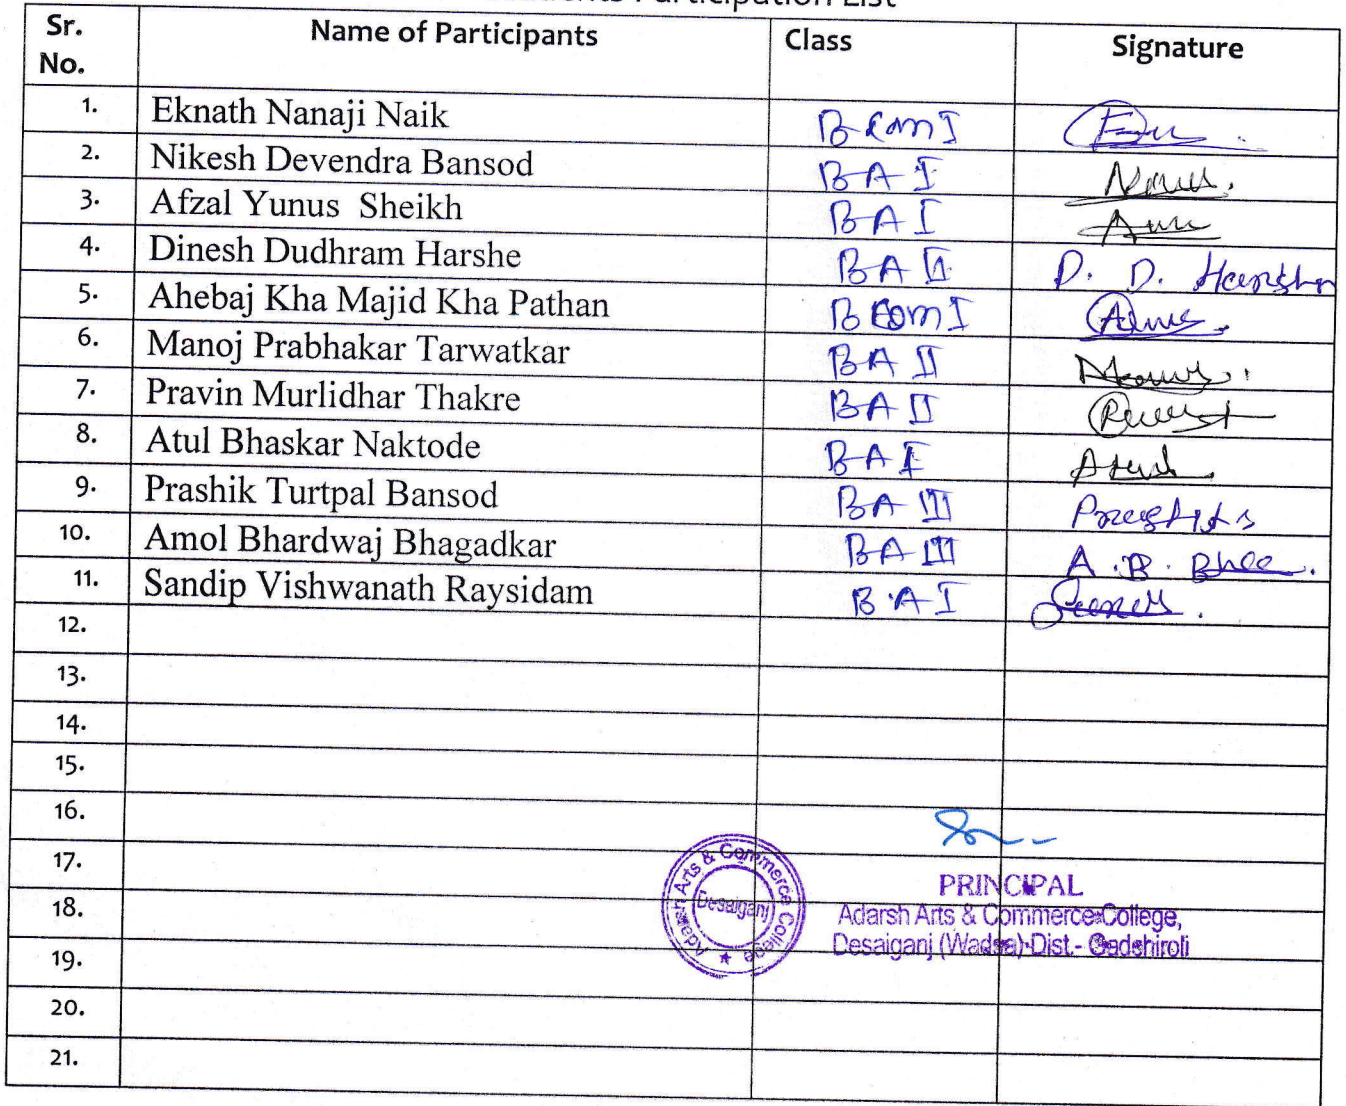 Participation List
Sr. No. Name of Participants Class Signature
1. Eknath Nanaji Naik B com I
2. Nikesh Devendra Bansod B A I
3. Afzal Yunus Sheikh B A I
4. Dinesh Dudhram Harshe B A II D. D. Harshe
5. Ahebaj Kha Majid Kha Pathan B com I
6. Manoj Prabhakar Tarwatkar B A II
7. Pravin Murlidhar Thakre B A II
8. Atul Bhaskar Naktode B A I Atul
9. Prashik Turtpal Bansod B A III
10. Amol Bhardwaj Bhagadkar B A III A. B.
11. Sandip Vishwanath Raysidam B.A I
12.
13.
14.
15.
16.
17.
18.
19.
20.
21.
Adarsh Arts & Commerce College
Desaiganj
PRINCIPAL
Adarsh Arts & Commerce College,
Desaiganj (Wadsa) Dist.- Gadchiroli